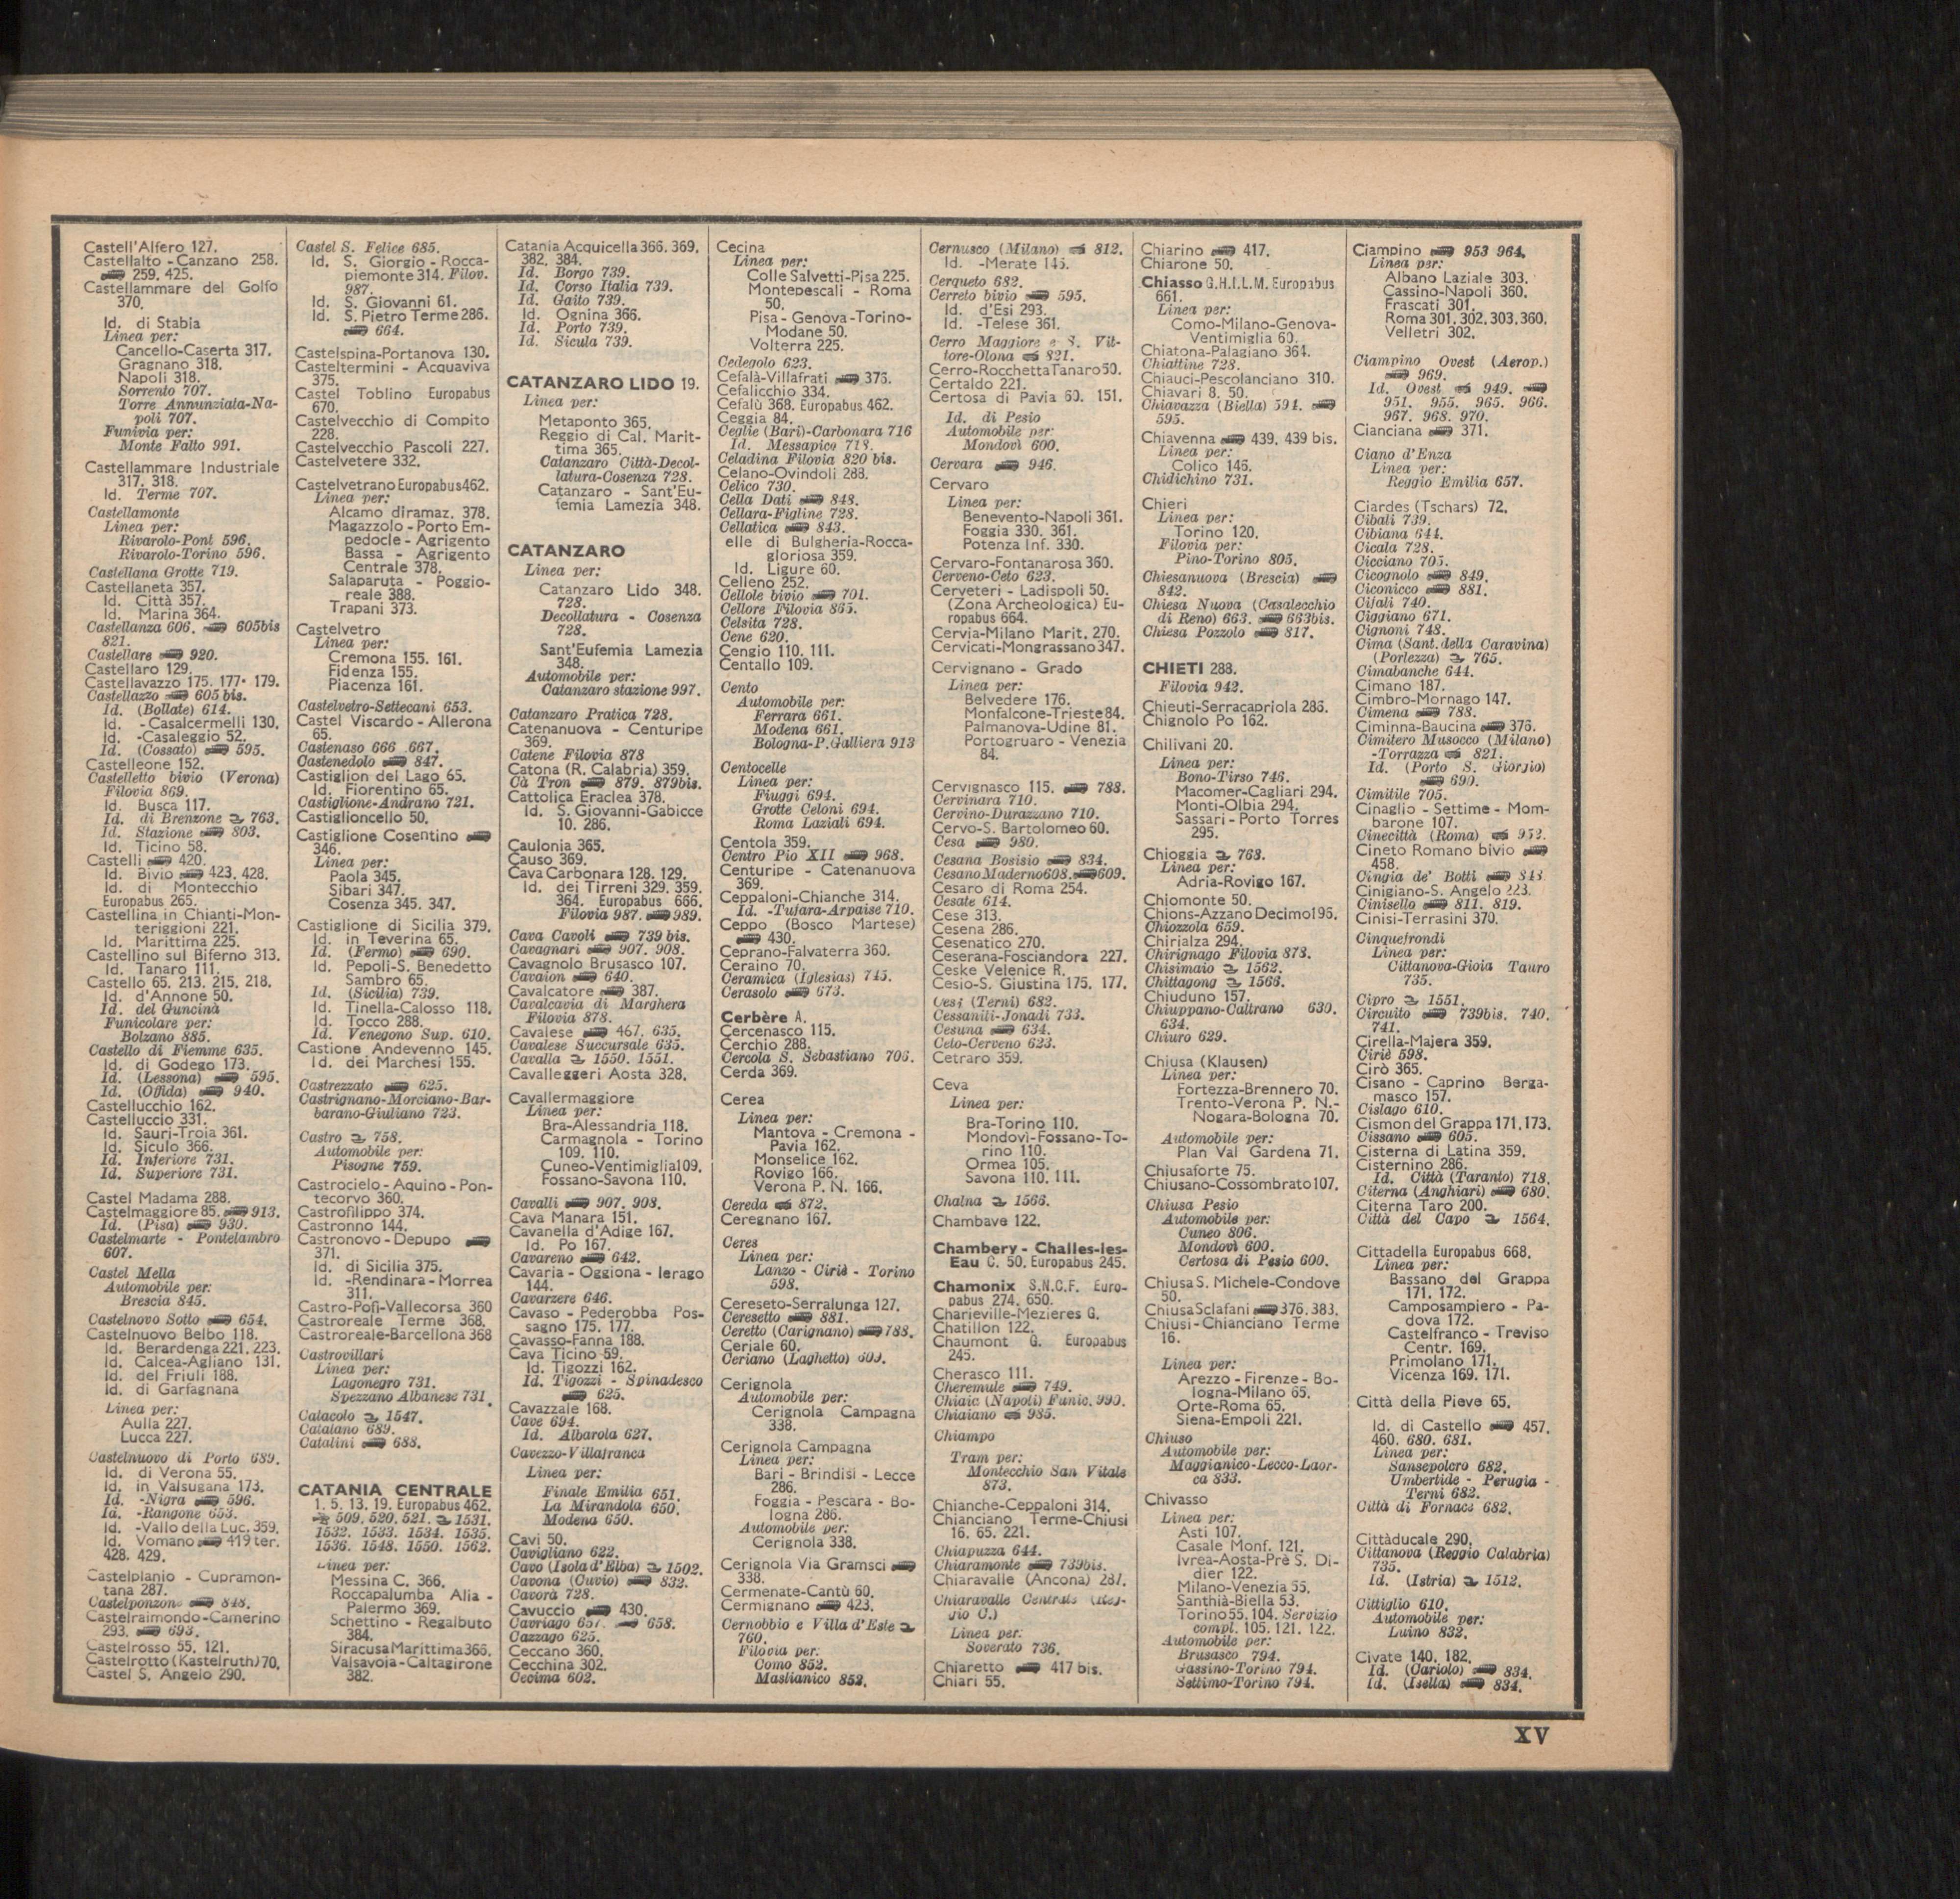 Castell'Alfero 127.
Castellalto - Canzano 258.
259. 425.
Castellammare del Golfo
370.
Id. di Stabia
Linea per:
Cancello-Caserta 317.
Gragnano 318.
Napoli 318.
Sorrento 707.
Torre Annunziata-Na-
poli 707.
Funivia per:
Monte Faito 991.
Castellammare Industriale
317. 318.
Id. Terme 707.
Castellamonte
Linea per:
Rivarolo-Pont 596.
Rivarolo-Torino 596.
Castellana Grotte 719.
Castellaneta 357.
Id. Città 357.
Id. Marina 364.
Castellanza 606. 605bis
821.
Castellare 920.
Castellaro 129.
Castellavazzo 175. 177. 179.
Castellazzo 605 bis.
Id. (Bollate) 614.
Id. -Casalcermelli 130.
Id. -Casaleggio 52.
Id. (Cossato) 595.
Castelleone 152.
Castelletto bivio (Verona)
Filovia 869.
Id. Busca 117.
Id. di Brenzone 763.
Id. Stazione 803.
Id. Ticino 58.
Castelli 420.
Id. Bivio 423. 428.
Id. di Montecchio
Europabus 265.
Castellina in Chianti-Mon-
teriggioni 221.
Id. Marittima 225.
Castellino sul Biferno 313.
Id. Tanaro 111.
Castello 65. 213. 215. 218.
Id. d'Annone 50.
Id. del Guncinà
Funicolare per:
Bolzano 885.
Castello di Fiemme 635.
Id. di Godego 173.
Id. (Lessona) 595.
Id. (Offida) 940.
Castellucchio 162.
Castelluccio 331.
Id. Sauri-Troia 361.
Id. Siculo 366.
Id. Inferiore 731.
Id. Superiore 731.
Castel Madama 288.
Castelmaggiore 85. 913.
Id. (Pisa) 930.
Castelmarte - Pontelambro
607.
Castel Mella
Automobile per:
Brescia 845.
Castelnovo Sotto 654.
Castelnuovo Belbo 118.
Id. Berardenga 221. 223.
Id. Calcea-Agliano 131.
Id. del Friuli 188.
Id. di Garfagnana
Linea per:
Aulla 227.
Lucca 227.
Castelnuovo di Porto 689.
Id. di Verona 55.
Id. in Valsugana 173.
Id. -Nigra 596.
Id. -Rangone 653.
Id. -Vallo della Luc. 359.
Id. Vomano 419 ter.
428. 429.
Castelplanio - Cupramon-
tana 287.
Castelponzone 848.
Castelraimondo-Camerino
293. 693.
Castelrosso 55. 121.
Castelrotto (Kastelruth) 70.
Castel S. Angelo 290.
Castel S. Felice 685.
Id. S. Giorgio - Rocca-
piemonte 314. Filov.
987.
Id. S. Giovanni 61.
Id. S. Pietro Terme 286.
664.
Castelspina-Portanova 130.
Casteltermini - Acquaviva
375.
Castel Toblino Europabus
670.
Castelvecchio di Compito
228.
Castelvecchio Pascoli 227.
Castelvetere 332.
Castelvetrano Europabus 462.
Linea per:
Alcamo diramaz. 378.
Magazzolo - Porto Em-
pedocle - Agrigento
Bassa - Agrigento
Centrale 378.
Salaparuta - Poggio-
reale 388.
Trapani 373.
Castelvetro
Linea per:
Cremona 155. 161.
Fidenza 155.
Piacenza 161.
Castelvetro-Settecani 653.
Castel Viscardo - Allerona
65.
Castenaso 666 667.
Castenedolo 847.
Castiglion del Lago 65.
Id. Fiorentino 65.
Castiglione-Andrano 721.
Castiglioncello 50.
Castiglione Cosentino
346.
Linea per:
Paola 345.
Sibari 347.
Cosenza 345. 347.
Castiglione di Sicilia 379.
Id. in Teverina 65.
Id. (Fermo) 690.
Id. Pepoli-S. Benedetto
Sambro 65.
Id. (Sicilia) 739.
Id. Tinella-Calosso 118.
Id. Tocco 288.
Id. Venegono Sup. 610.
Castione Andevenno 145.
Id. dei Marchesi 155.
Castrezzato 625.
Castrignano-Morciano-Bar-
barano-Giuliano 723.
Castro 758.
Automobile per:
Pisogne 759.
Castrocielo - Aquino - Pon-
tecorvo 360.
Castrofilippo 374.
Castronno 144.
Castronovo - Depupo
371.
Id. di Sicilia 375.
Id. -Rendinara - Morrea
311.
Castro-Pofi-Vallecorsa 360
Castroreale Terme 368.
Castroreale-Barcellona 368
Castrovillari
Linea per:
Lagonegro 731.
Spezzano Albanese 731
Catacolo 1547.
Catalano 689.
Catalini 688.
CATANIA CENTRALE
1. 5. 13. 19. Europabus 462.
509. 520. 521. 1531.
1532. 1533. 1534. 1535.
1536. 1548. 1550. 1562.
Linea per:
Messina C. 366.
Roccapalumba Alia -
Palermo 369.
Schettino - Regalbuto
384.
Siracusa Marittima 366.
Valsavoia-Caltagirone
382.
Catania Acquicella 366. 369.
382. 384.
Id. Borgo 739.
Id. Corso Italia 739.
Id. Gaito 739.
Id. Ognina 366.
Id. Porto 739.
Id. Sicula 739.
CATANZARO LIDO 19.
Linea per:
Metaponto 365.
Reggio di Cal. Marit-
tima 365.
Catanzaro Città-Decol-
latura-Cosenza 728.
Catanzaro - Sant'Eu-
femia Lamezia 348.
CATANZARO
Linea per:
Catanzaro Lido 348.
728.
Decollatura - Cosenza
728.
Sant'Eufemia Lamezia
348.
Automobile per:
Catanzaro stazione 997.
Catanzaro Pratica 728.
Catenanuova - Centuripe
369.
Catene Filovia 878
Catona (R. Calabria) 359.
Cà Tron 879. 879bis.
Cattolica Eraclea 378.
Id. S. Giovanni-Gabicce
10. 286.
Caulonia 365.
Causo 369.
Cava Carbonara 128. 129.
Id. dei Tirreni 329. 359.
364. Europabus 666.
Filovia 987. 989.
Cava Cavoli 739 bis.
Cavagnari 907. 908.
Cavagnolo Brusasco 107.
Cavaion 640.
Cavalcatore 387.
Cavalcavia di Marghera
Filovia 878.
Cavalese 467. 635.
Cavalese Succursale 635.
Cavalla 1550. 1551.
Cavalleggeri Aosta 328.
Cavallermaggiore
Linea per:
Bra-Alessandria 118.
Carmagnola - Torino
109. 110.
Cuneo-Ventimiglia 109.
Fossano-Savona 110.
Cavalli 907. 908.
Cava Manara 151.
Cavanella d'Adige 167.
Id. Po 167.
Cavareno 642.
Cavaria - Oggiona - Ierago
144.
Cavarzere 646.
Cavaso - Pederobba Pos-
sagno 175. 177.
Cavasso-Fanna 188.
Cava Ticino 59.
Id. Tigozzi 162.
Id. Tigozzi - Spinadesco
625.
Cavazzale 168.
Cave 694.
Id. Albarola 627.
Cavezzo-Villafranca
Linea per:
Finale Emilia 651.
La Mirandola 650.
Modena 650.
Cavi 50.
Cavigliano 622.
Cavo (Isola d'Elba) 1502.
Cavona (Cuvio) 832.
Cavorà 728.
Cavuccio 430.
Cavriago 657. 658.
Cazzago 625.
Ceccano 360.
Cecchina 302.
Cecima 602.
Cecina
Linea per:
Colle Salvetti-Pisa 225.
Montepescali - Roma
50.
Pisa - Genova-Torino-
Modane 50.
Volterra 225.
Cedegolo 623.
Cefalà-Villafrati 375.
Cefalicchio 334.
Cefalù 368. Europabus 462.
Ceggia 84.
Ceglie (Bari)-Carbonara 716
Id. Messapico 718.
Celadina Filovia 820 bis.
Celano-Ovindoli 288.
Celico 730.
Cella Dati 848.
Cellara-Figline 728.
Cellatica 843.
elle di Bulgheria-Rocca-
gloriosa 359.
Id. Ligure 60.
Celleno 252.
Cellole bivio 701.
Cellore Filovia 865.
Celsita 728.
Cene 620.
Cengio 110. 111.
Centallo 109.
Cento
Automobile per:
Ferrara 661.
Modena 661.
Bologna-P. Galliera 913
Centocelle
Linea per:
Fiuggi 694.
Grotte Celoni 694.
Roma Laziali 694.
Centola 359.
Centro Pio XII 968.
Centuripe - Catenanuova
369.
Ceppaloni-Chianche 314.
Id. -Tufara-Arpaise 710.
Ceppo (Bosco Martese)
430.
Ceprano-Falvaterra 360.
Ceraino 70.
Ceramica (Iglesias) 745.
Cerasolo 673.
Cerbère A.
Cercenasco 115.
Cerchio 288.
Cercola S. Sebastiano 706.
Cerda 369.
Cerea
Linea per:
Mantova - Cremona -
Pavia 162.
Monselice 162.
Rovigo 166.
Verona P. N. 166.
Cereda 872.
Ceregnano 167.
Ceres
Linea per:
Lanzo - Ciriè - Torino
598.
Cereseto-Serralunga 127.
Ceresetto 881.
Ceretto (Carignano) 788.
Ceriale 60.
Ceriano (Laghetto) 609.
Cerignola
Automobile per:
Cerignola Campagna
338.
Cerignola Campagna
Linea per:
Bari - Brindisi - Lecce
286.
Foggia - Pescara - Bo-
logna 286.
Automobile per:
Cerignola 338.
Cerignola Via Gramsci
338.
Cermenate-Cantù 60.
Cermignano 423.
Cernobbio e Villa d'Este
760.
Filovia per:
Como 852.
Maslianico 852.
Cernusco (Milano) 812.
Id. -Merate 145.
Cerqueto 682.
Cerreto bivio 595.
Id. d'Esi 293.
Id. -Telese 361.
Cerro Maggiore e S. Vit-
tore-Olona 821.
Cerro-Rocchetta Tanaro 50.
Certaldo 221.
Certosa di Pavia 60. 151.
Id. di Pesio
Automobile per:
Mondovì 600.
Cervara 946.
Cervaro
Linea per:
Benevento-Napoli 361.
Foggia 330. 361.
Potenza Inf. 330.
Cervaro-Fontanarosa 360.
Cerveno-Ceto 623.
Cerveteri - Ladispoli 50.
(Zona Archeologica) Eu-
ropabus 664.
Cervia-Milano Marit. 270.
Cervicati-Mongrassano 347.
Cervignano - Grado
Linea per:
Belvedere 176.
Monfalcone-Trieste 84.
Palmanova-Udine 81.
Portogruaro - Venezia
84.
Cervignasco 115. 788.
Cervinara 710.
Cervino-Durazzano 710.
Cervo-S. Bartolomeo 60.
Cesa 980.
Cesana Bosisio 834.
Cesano Maderno 608. 609.
Cesaro di Roma 254.
Cesate 614.
Cese 313.
Cesena 286.
Cesenatico 270.
Ceserana-Fosciandora 227.
Ceske Velenice R.
Cesio-S. Giustina 175. 177.
Cesi (Terni) 682.
Cessaniti-Jonadi 733.
Cesuna 634.
Ceto-Cerveno 623.
Cetraro 359.
Ceva
Linea per:
Bra-Torino 110.
Mondovì-Fossano-To-
rino 110.
Ormea 105.
Savona 110. 111.
Chalna 1566.
Chambave 122.
Chambery - Challes-les-
Eau C. 50. Europabus 245.
Chamonix S.N.C.F. Euro-
pabus 274. 650.
Charleville-Mezieres G.
Chatillon 122.
Chaumont G. Europabus
245.
Cherasco 111.
Cheremule 749.
Chiaic (Napoli) Funic. 990.
Chiaiano 985.
Chiampo
Tram per:
Montecchio San Vitale
873.
Chianche-Ceppaloni 314.
Chianciano Terme-Chiusi
16. 65. 221.
Chiapuzza 644.
Chiaramonte 739bis.
Chiaravalle (Ancona) 287.
Chiaravalle Centrale (Reg-
gio C.)
Linea per:
Soverato 736.
Chiaretto 417 bis.
Chiari 55.
Chiarino 417.
Chiarone 50.
Chiasso G.H.I.L.M. Europabus
661.
Linea per:
Como-Milano-Genova-
Ventimiglia 60.
Chiatona-Palagiano 364.
Chiattine 728.
Chiauci-Pescolanciano 310.
Chiavari 8. 50.
Chiavazza (Biella) 594.
595.
Chiavenna 439. 439 bis.
Linea per:
Colico 146.
Chidichino 731.
Chieri
Linea per:
Torino 120.
Filovia per:
Pino-Torino 805.
Chiesanuova (Brescia)
842.
Chiesa Nuova (Casalecchio
di Reno) 663. 663bis.
Chiesa Pozzolo 817.
CHIETI 288.
Filovia 942.
Chieuti-Serracapriola 286.
Chignolo Po 162.
Chilivani 20.
Linea per:
Bono-Tirso 746.
Macomer-Cagliari 294.
Monti-Olbia 294.
Sassari - Porto Torres
295.
Chioggia 763.
Linea per:
Adria-Rovigo 167.
Chiomonte 50.
Chions-Azzano Decimo 196.
Chiozzola 659.
Chirialza 294.
Chirignago Filovia 878.
Chisimaio 1562.
Chittagong 1566.
Chiuduno 157.
Chiuppano-Caltrano 630.
634.
Chiuro 629.
Chiusa (Klausen)
Linea per:
Fortezza-Brennero 70.
Trento-Verona P. N.-
Nogara-Bologna 70.
Automobile per:
Plan Val Gardena 71.
Chiusaforte 75.
Chiusano-Cossombrato 107.
Chiusa Pesio
Automobile per:
Cuneo 806.
Mondovì 600.
Certosa di Pesio 600.
Chiusa S. Michele-Condove
50.
Chiusa Sclafani 376. 383.
Chiusi-Chianciano Terme
16.
Linea per:
Arezzo - Firenze - Bo-
logna-Milano 65.
Orte-Roma 65.
Siena-Empoli 221.
Chiuso
Automobile per:
Maggianico-Lecco-Laor-
ca 833.
Chivasso
Linea per:
Asti 107.
Casale Monf. 121.
Ivrea-Aosta-Prè S. Di-
dier 122.
Milano-Venezia 55.
Santhià-Biella 53.
Torino 55. 104. Servizio
compl. 105. 121. 122.
Automobile per:
Brusasco 794.
Gassino-Torino 794.
Settimo-Torino 794.
Ciampino 953 964.
Linea per:
Albano Laziale 303.
Cassino-Napoli 360.
Frascati 301
Roma 301. 302. 303. 360.
Velletri 302.
Ciampino Ovest (Aerop.)
969.
Id. Ovest 949.
951. 955. 965. 966.
967. 968. 970.
Cianciana 371.
Ciano d'Enza
Linea per:
Reggio Emilia 657.
Ciardes (Tschars) 72.
Cibali 739.
Cibiana 644.
Cicala 728.
Cicciano 705.
Cicognolo 849.
Ciconicco 881.
Cifali 740.
Ciggiano 671.
Cignoni 748.
Cima (Sant. della Caravina)
(Porlezza) 765.
Cimabanche 644.
Cimano 187.
Cimbro-Mornago 147.
Cimena 788.
Ciminna-Baucina 376.
Cimitero Musocco (Milano)
-Torrazza 821.
Id. (Porto S. Giorgio)
690.
Cimitile 705.
Cinaglio - Settime - Mom-
barone 107.
Cinecittà (Roma) 952.
Cineto Romano bivio
458.
Cingia de' Botti 848
Cinigiano-S. Angelo 223.
Cinisello 811. 819.
Cinisi-Terrasini 370.
Cinquefrondi
Linea per:
Cittanova-Gioia Tauro
735.
Cipro 1551.
Circuito 739bis. 740.
741.
Cirella-Majera 359.
Ciriè 598.
Cirò 365.
Cisano - Caprino Berga-
masco 157.
Cislago 610.
Cismon del Grappa 171. 173.
Cissano 605.
Cisterna di Latina 359.
Cisternino 286.
Id. Città (Taranto) 718.
Citerna (Anghiari) 680.
Citerna Taro 200.
Città del Capo 1564.
Cittadella Europabus 668.
Linea per:
Bassano del Grappa
171. 172.
Camposampiero - Pa-
dova 172.
Castelfranco - Treviso
Centr. 169.
Primolano 171.
Vicenza 169. 171.
Città della Pieve 65.
Id. di Castello 457.
460. 680. 681.
Linea per:
Sansepolcro 682.
Umbertide - Perugia -
Terni 682.
Città di Fornace 682.
Cittàducale 290.
Cittanova (Reggio Calabria)
735.
Id. (Istria) 1512.
Cittiglio 610.
Automobile per:
Luino 832.
Civate 140. 182.
Id. (Cariolo) 834.
Id. (Isella) 834.
XV